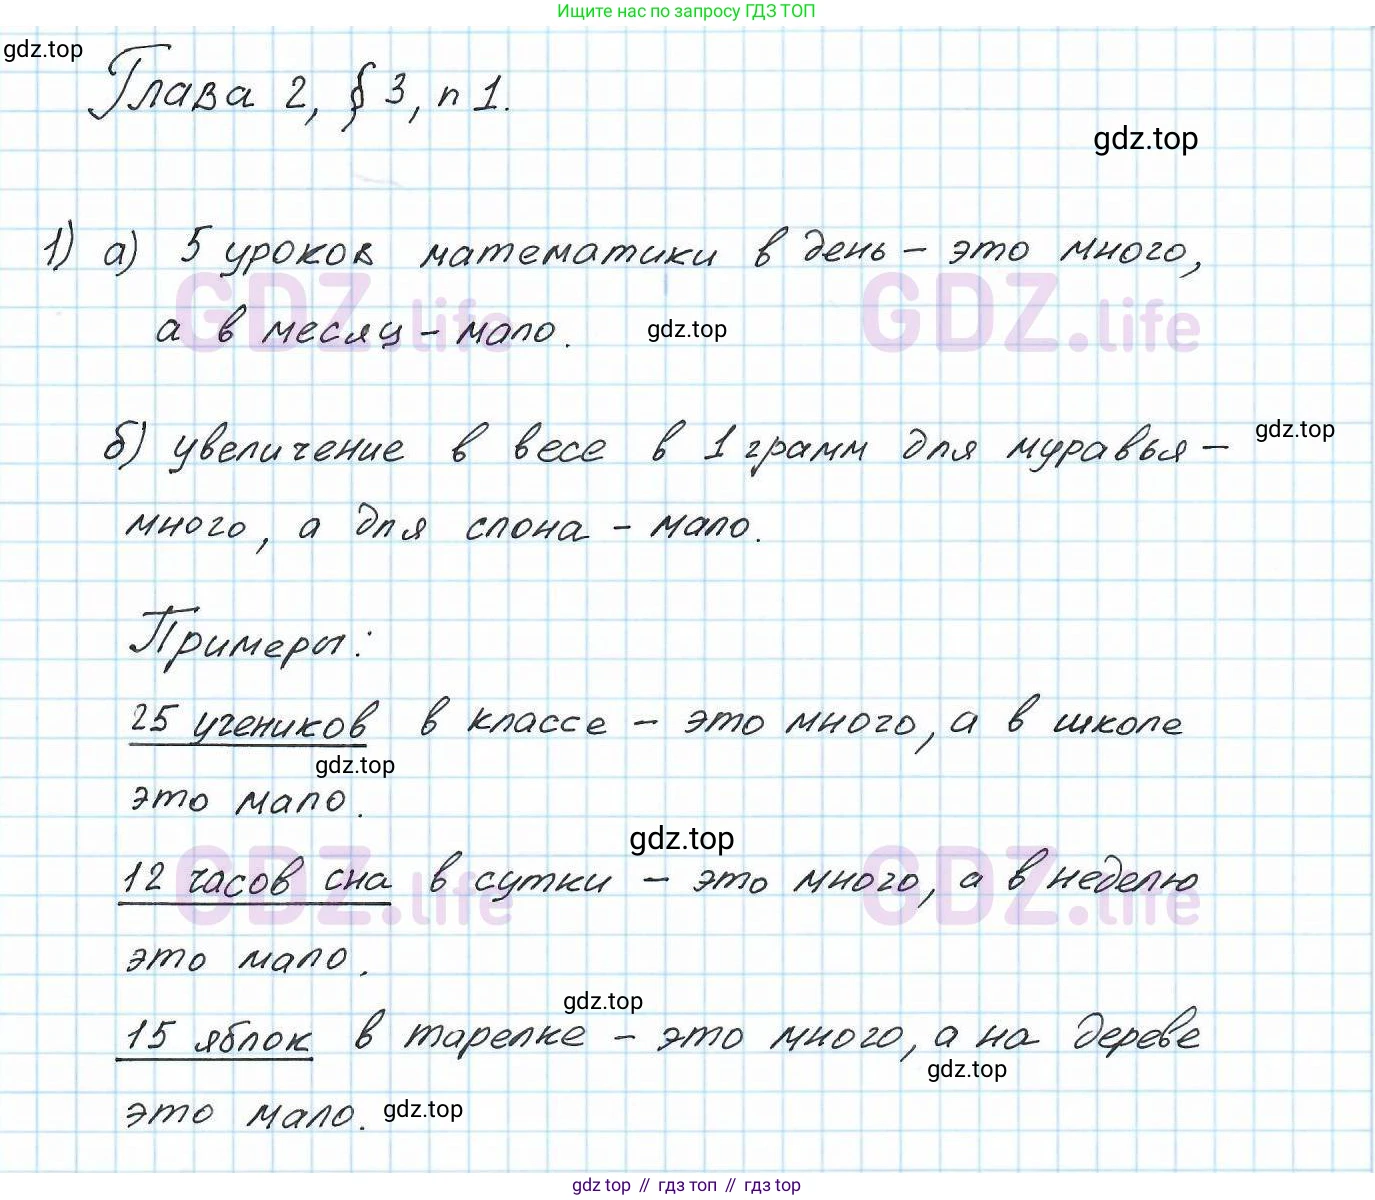 Ищите нас по запросу ГДЗ ТОП
gdz.top
Глава 2, § 3, п 1.
gdz.top
1) а) 5 уроков математики в день – это много,
GDZ.life GDZ.life
а в месяц – мало. gdz.top
б) увеличение в весе в 1 грамм для муравья – gdz.top
много, а для слона – мало.
Примеры:
25 учеников в классе – это много, а в школе
gdz.top
это мало.
gdz.top
GDZ.life GDZ.life
12 часов сна в сутки – это много, а в неделю
это мало.
gdz.top
15 яблок в тарелке – это много, а на дереве
gdz.top
это мало. gdz.top
gdz top // гдз топ // gdz top